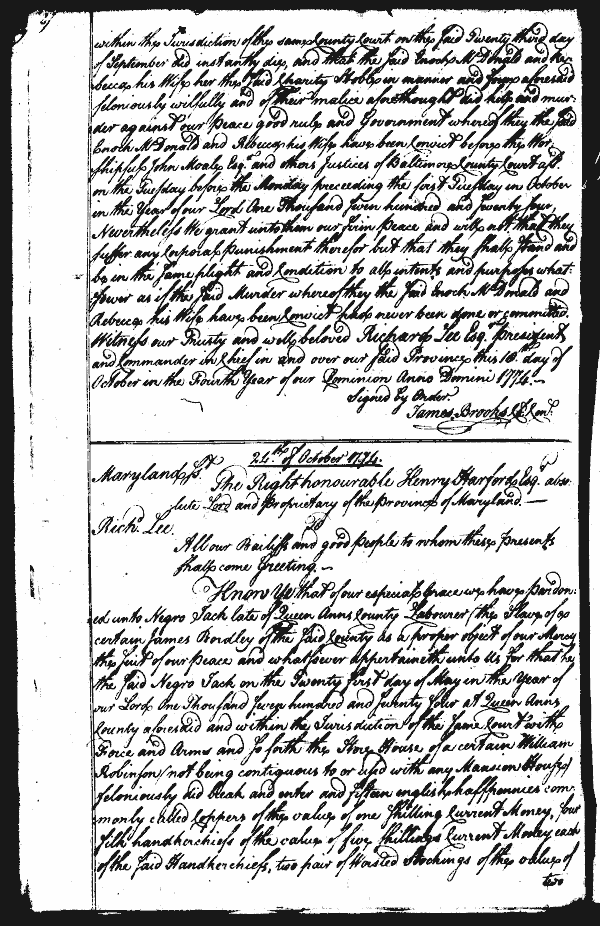 within the Jurisdiction of the same County Court on the said Twenty third day
of September did instantly die, and that the said Enoch McDonald and Re-
becca his Wife her the said Charity Hobbs in manner and form aforesaid
feloniously wilfully and of their malice aforethought did kill and mur-
der against our Peace good rule and Government whereof they the said
Enoch McDonald and Rebecca his Wife have been Convict before the Wor-
shipful John Moale Esq. and others Justices of Baltimore County Court at
on the Tuesday before the Monday preceeding the first Tuesday in October
in the Year of our Lord One Thousand seven hundred and seventy four
Nevertheless We grant unto them our firm Peace and will not that they
suffer any Corporal Punishment therefor but that they shall stand and
be in the same plight and Condition to all intents and purposes what-
soever as if the said Murder whereof they the said Enoch McDonald and
Rebecca his Wife have been Convict had never been done or committed.
Witness our Trusty and well beloved Richard Lee Esq.r President
and Commander in Chief in and over our said Province this 10.th day of
October in the Fourth Year of our Dominion Anno Domini 1774.—
Signed by Order.
James Brooks Cl. Con.
24.th of October 1774.
Maryland, Ss.t The Right honourable Henry Harford Esq.r abso-
lute Lord and Proprietary of the Province of Maryland.—
Rich.d Lee
To
All our Bailiffs and good people to whom these presents
shall come Greeting.—
Know Ye that of our especial Grace we have pardon-
ed unto Negro Jack late of Queen Anns County Labourer (the Slave of a
certain James Bordley of the said County as a proper object of our Mercy
the suit of our Peace and whatsoever appertaineth unto Us for that he
the said Negro Jack on the Twenty first day of May in the Year of
our Lord One Thousand seven hundred and seventy four at Queen Anns
County aforesaid and within the Jurisdiction of the same Court with
Force and Arms and so forth the Store House of a certain William
Robinson (not being contiguous to or used with any Mansion House)
feloniously did break and enter and fifteen english halfpennies com-
monly called Coppers of the value of one shilling Current Money, four
Silk handkerchiefs of the value of five shillings Current Money each
of the said Handkerchiefs, two pair of Worsted Stockings of the value of
two